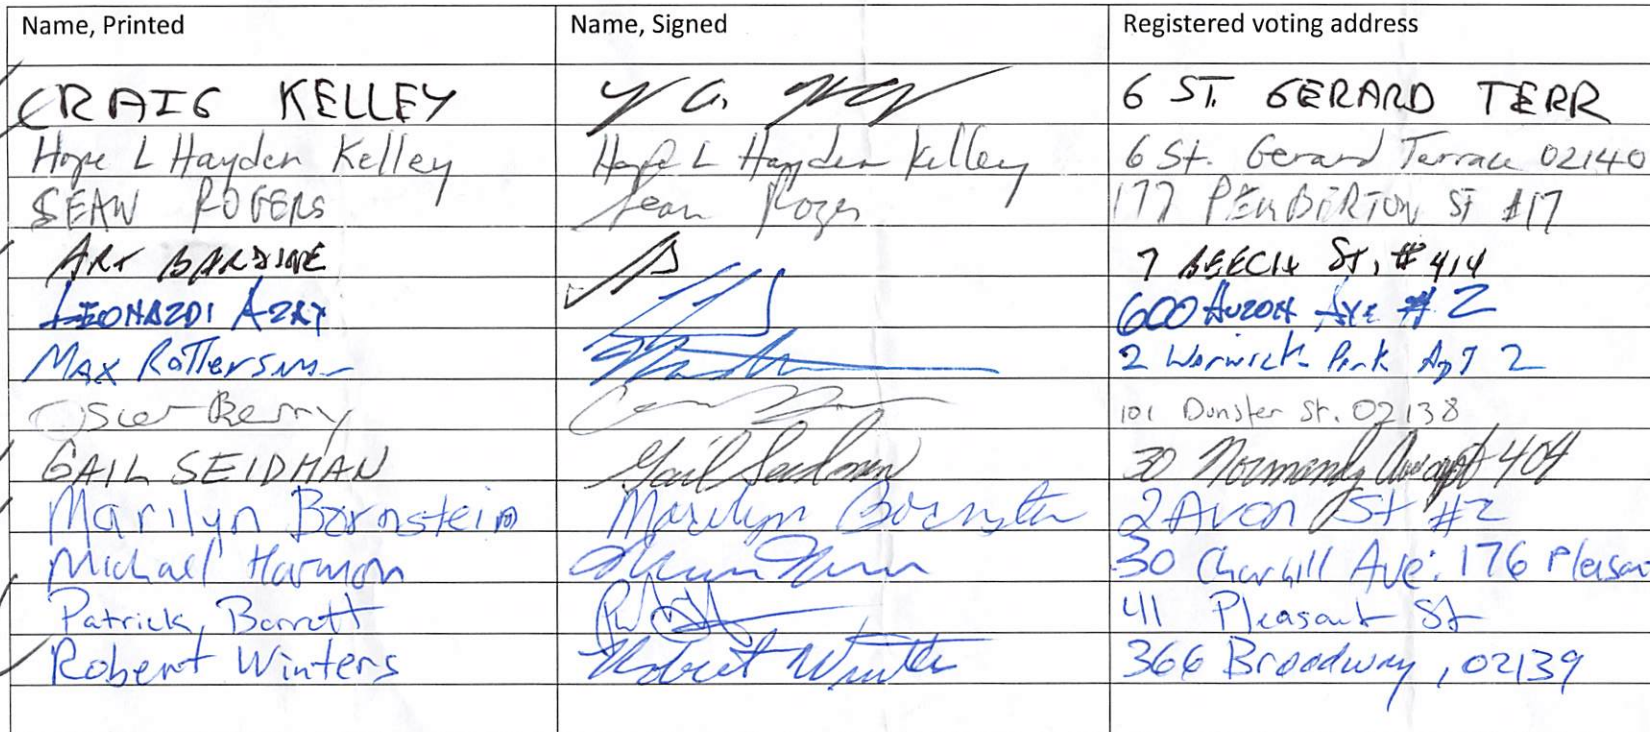 Name, Printed Name, Signed Registered voting address
CRAIG KELLEY 6 ST. GERARD TERR
Hope L Hayden Kelley Hope L Hayden Kelley 6 St. Gerard Terrace 02140
SEAN ROGERS Sean Roger 177 PEMBERTON ST #17
ART BARDIGE 7 BEECH ST, #414
600 HURON AVE # 2
MAX 2 Warwick Park Apt 2
Oscar Berry 101 Dunster St. 02138
GAIL SEIDMAN Gail Seidman 30 Normandy Ave apt 404
Marilyn Bornstein Marilyn Bornstein 2 Avon St #2
Michael Harmon 30 Churchill Ave: 176 Pleasan
Patrick Barrett 41 Pleasant St
Robert Winters Robert Winters 366 Broadway, 02139